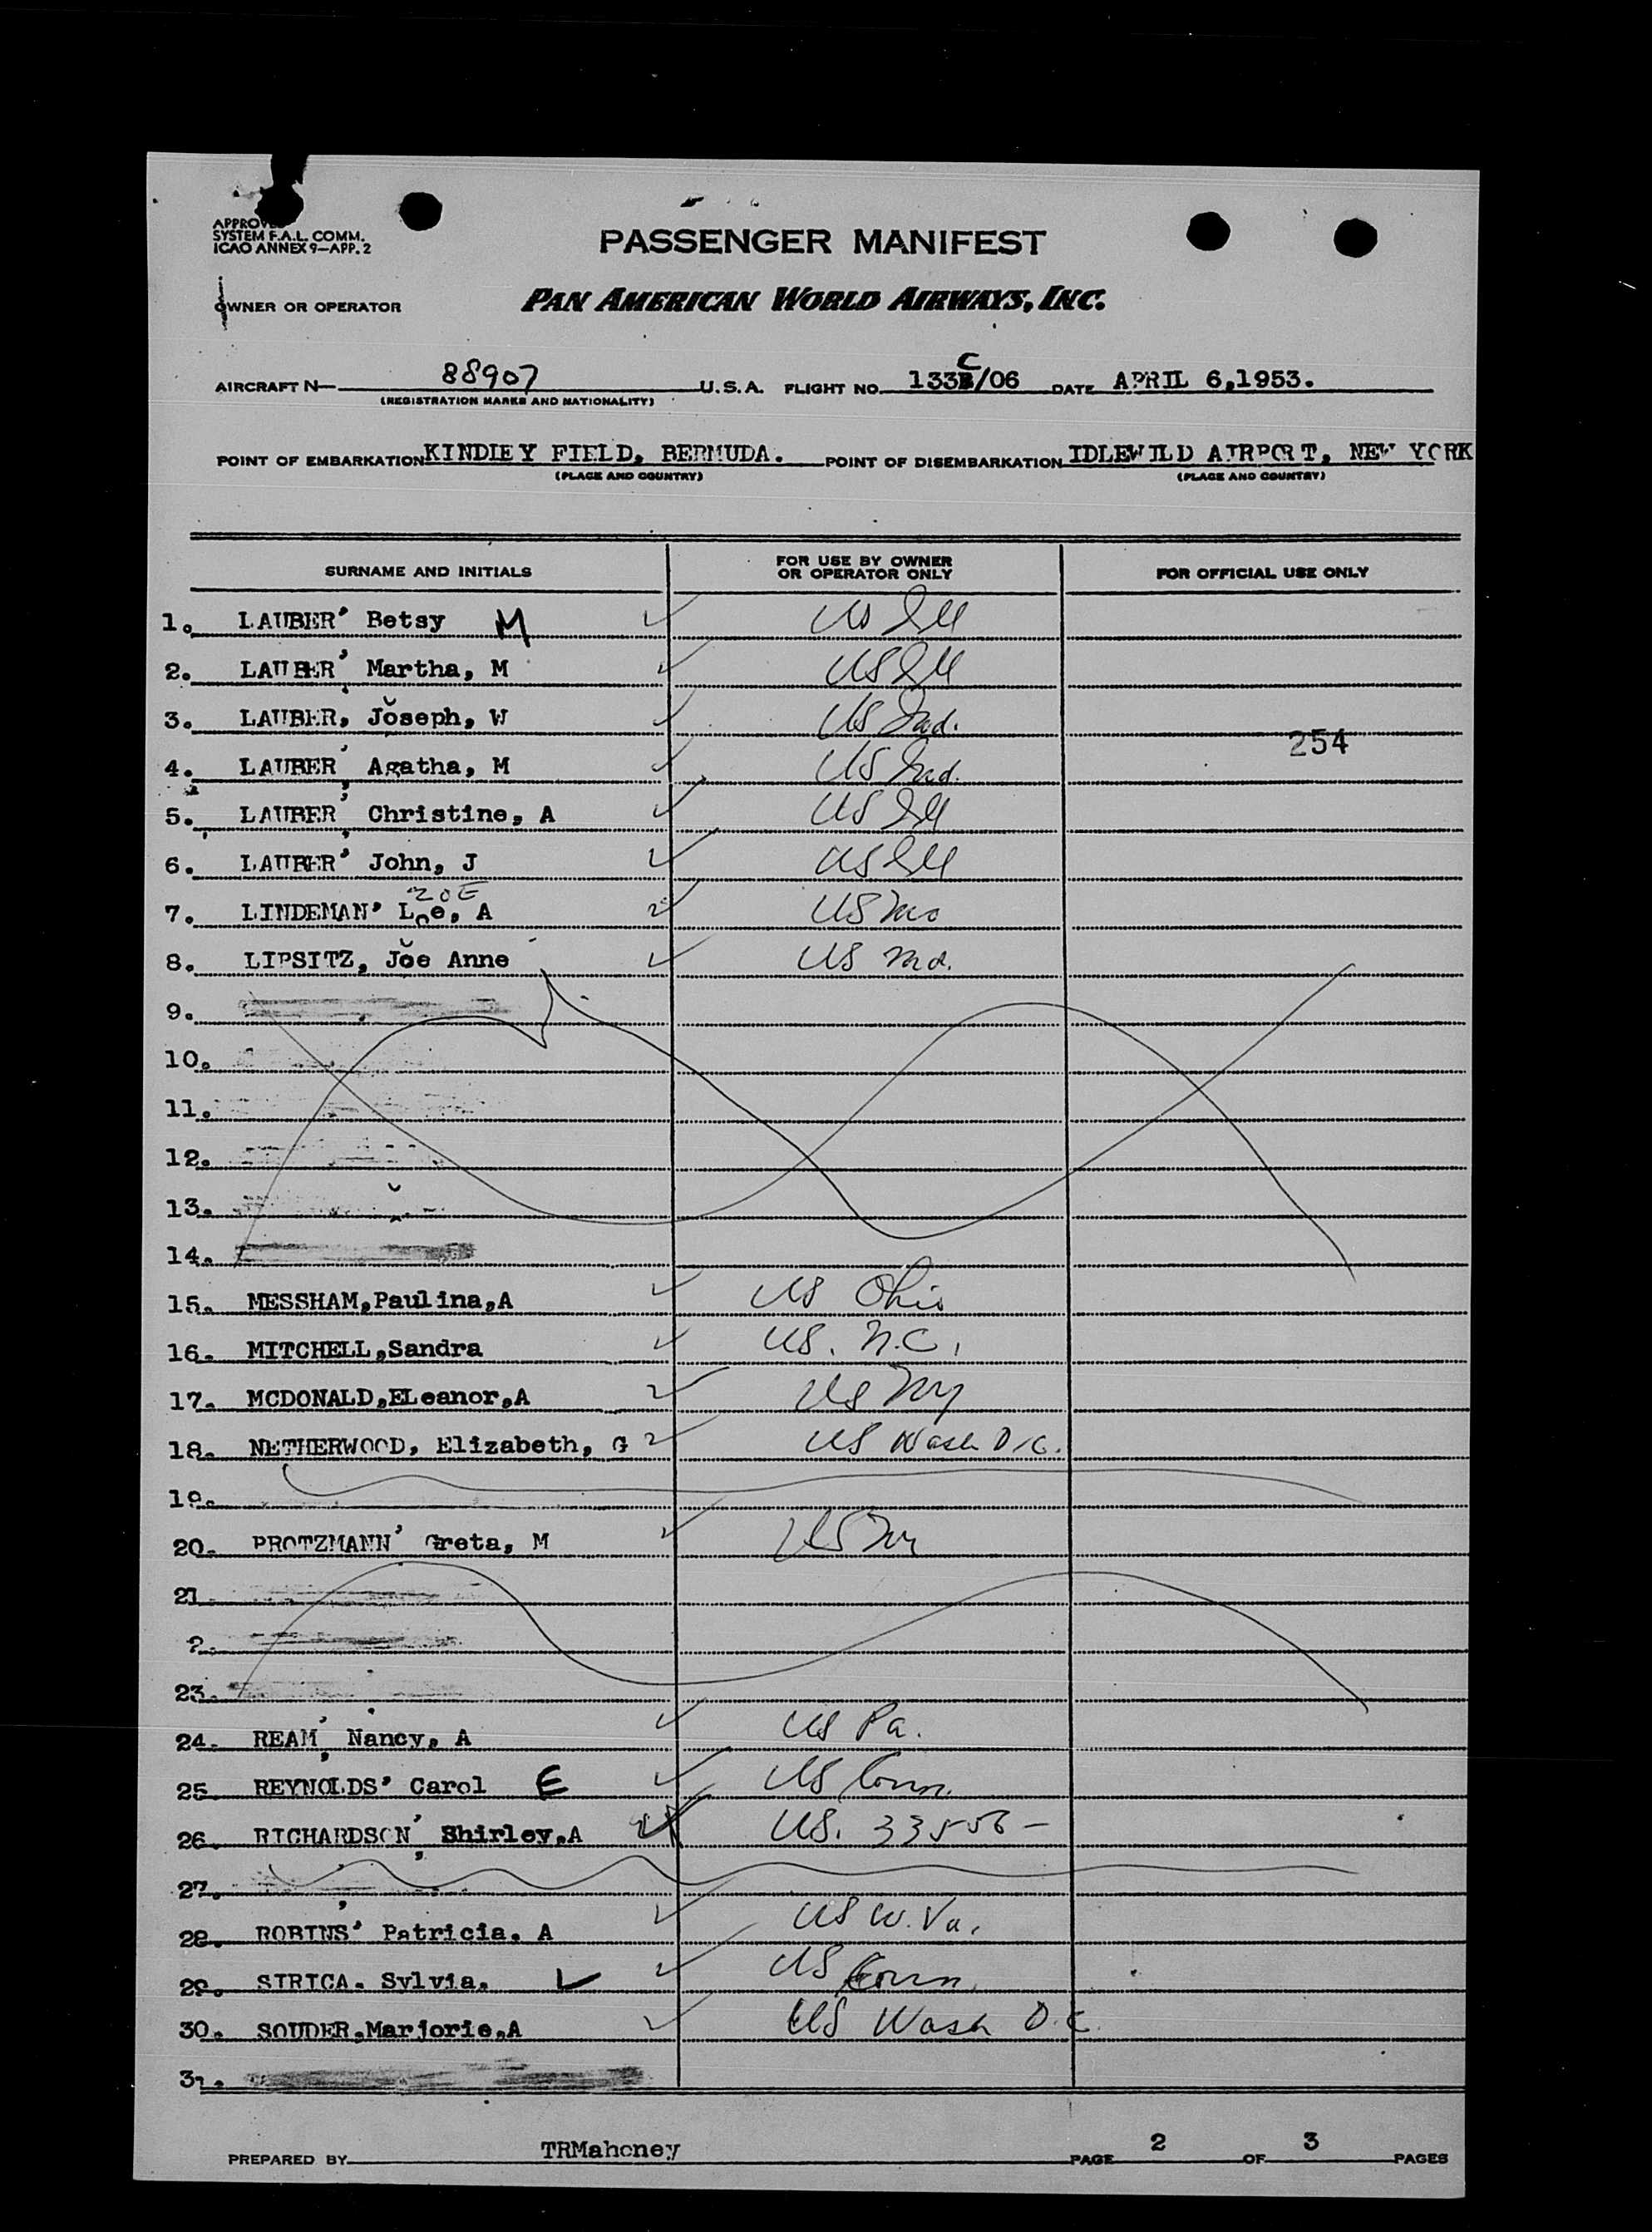 APPROVE
SYSTEM F.A.L. COMM.
ICAO ANNEX 9—APP. 2
PASSENGER MANIFEST
OWNER OR OPERATOR PAN AMERICAN WORLD AIRWAYS, INC.
AIRCRAFT N— 88907 U.S.A. FLIGHT NO. 133C/06 DATE APRIL 6,1953.
(REGISTRATION MARKS AND NATIONALITY)
POINT OF EMBARKATION KINDLEY FIELD, BERMUDA. POINT OF DISEMBARKATION IDLEWILD AIRPORT, NEW YORK
(PLACE AND COUNTRY) (PLACE AND COUNTRY)
SURNAME AND INITIALS FOR USE BY OWNER OR OPERATOR ONLY FOR OFFICIAL USE ONLY
1. LAUBER' Betsy M US Ill
2. LAUBER' Martha, M US Ill
3. LAUBER, Joseph, W US Ind.
254
4. LAUBER' Agatha, M US Ind.
5. LAUBER' Christine, A US Ill
6. LAUBER' John, J US Ill
ZOE
7. LINDEMAN' Loe, A US Mo
8. LIPSITZ, Joe Anne US Md.
9.
10.
11.
12.
13.
14.
15. MESSHAM,Paulina,A US Ohio
16. MITCHELL,Sandra US. N.C.
17. MCDONALD,ELeanor,A US NY
18. NETHERWOOD, Elizabeth, G US Wash D.C.
19.
20. PROTZMANN' Greta, M US NY
21.
2.
23.
24. REAM' Nancy, A US Pa.
25. REYNOLDS' Carol E US Conn.
26. RICHARDSON' Shirley,A US. 33556-
27.
28. ROBINS' Patricia, A US W. Va.
29. STRICA. Sylvia. L US Conn.
30. SOUDER,Marjorie,A US Wash D.C.
31.
PREPARED BY TRMahoney PAGE 2 OF 3 PAGES